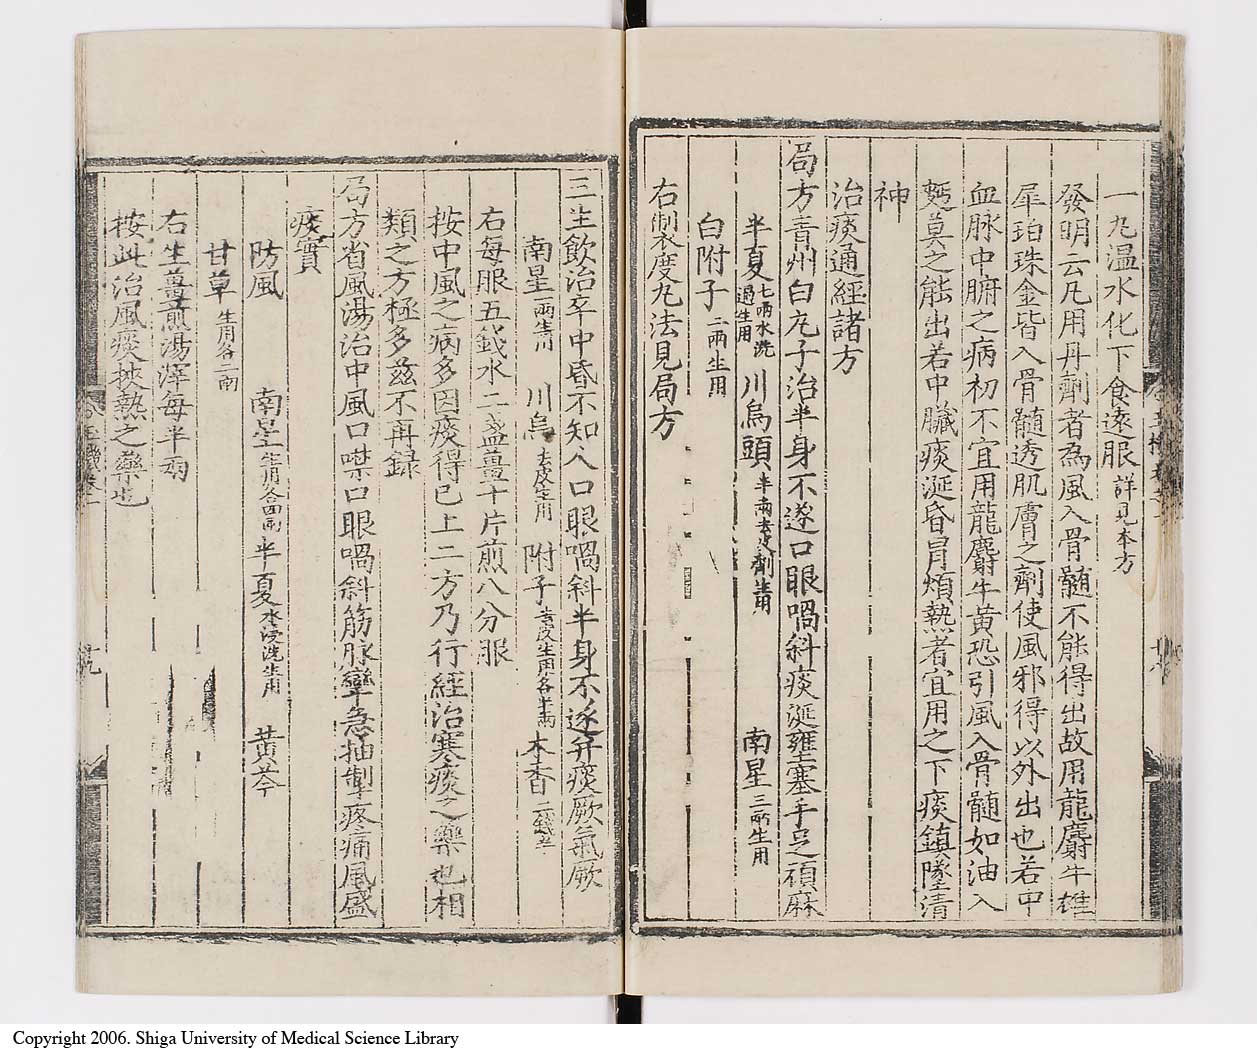 一丸温水化下食遠服 詳見本方
發明云凡用丹劑者為風入骨髓不能得出故用龍麝牛雄
犀珀珠金皆入骨髓透肌膚之劑使風邪得以外出也若中
血脉中腑之病初不宜用龍麝牛黃恐引風入骨髓如油入
麪莫之能出若中臟痰涎昏冒煩熱者宜用之下痰鎮墜清
神
治痰通經諸方
局方青州白丸子治半身不遂口眼喎斜痰涎壅塞手足頑麻
半夏 七兩水洗過生用 川烏頭 半兩去皮劑生用 南星 三兩生用
白附子 二兩生用
右制度丸法見局方
三生飲治卒中昏不知人口眼喎斜半身不遂并痰厥氣厥
南星 一兩生用 川烏 去皮生用 附子 去皮生用各半兩 木香 二錢半
右每服五錢水二盞薑十片煎八分服
按中風之病多因痰得已上二方乃行經治寒痰之藥也相
類之方極多茲不再録
局方省風湯治中風口噤口眼喎斜筋脉攣急抽掣疼痛風盛
痰實
防風 南星 生用各四兩 半夏 水浸洗生用 黃芩
甘草 生用各二兩
右生薑煎湯滓每半兩
按此治風痰挾熱之藥也
Copyright 2006. Shiga University of Medical Science Library